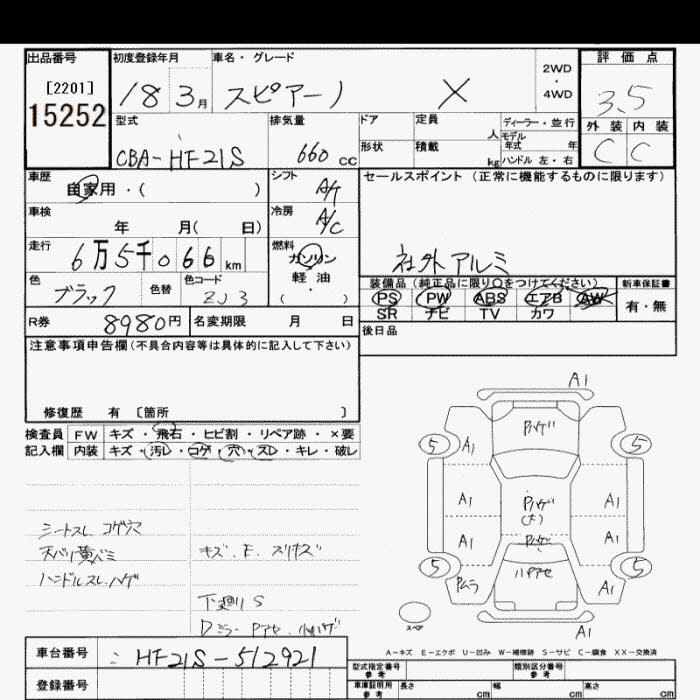 出品番号 初度登録年月 車名・グレード 2WD・4WD 評価点
[2201]
15252
18 3月 スピアーノ X 3.5
型式 排気量 ドア 定員 人 ディーラー・並行 外装 内装
モデル年式 年
CBA-HF21S 660cc 形状 積載 kg ハンドル 左・右 C C
車歴 自家用・( ) シフト A/T セールスポイント (正常に機能するものに限ります)
車検 年 月( 日) 冷房 A/C
走行 6万5千066km 燃料 ガソリン 軽油 ( ・ ) 社外アルミ
色 ブラック 色替 色コード ZJ3
装備品 (純正品に限り○をつけてください) 新車保証書
PS PW ABS エアB AW 有・無
SR ナビ TV カワ
R券 8980円 名変期限 月 日 後日品
注意事項申告欄(不具合内容等は具体的に記入して下さい)
修復歴 有 [箇所 ]
検査員 FW キズ・飛石・ヒビ割・リペア跡・×要
記入欄 内装 キズ・汚レ・コゲ・穴・スレ・キレ・破レ
シートスレ コゲ穴
天バリ黄バミ
ハンドルスレ.ハゲ
キズ.E.スリキズ
下廻りS
A1
5 A1 Pハゲ 5
A1 Pハゲ(大) A1
A1 Pハゲ A1
5 Pムラ A1 5
スペア A1
A-キズ E-エクボ U-凹み W-補修跡 S-サビ C-腐食 XX-交換済
車台番号 HF21S-512921
登録番号
型式指定番号 参考 類別区分番号 参考
車庫証明用 参考 長さ cm 幅 cm 高さ cm